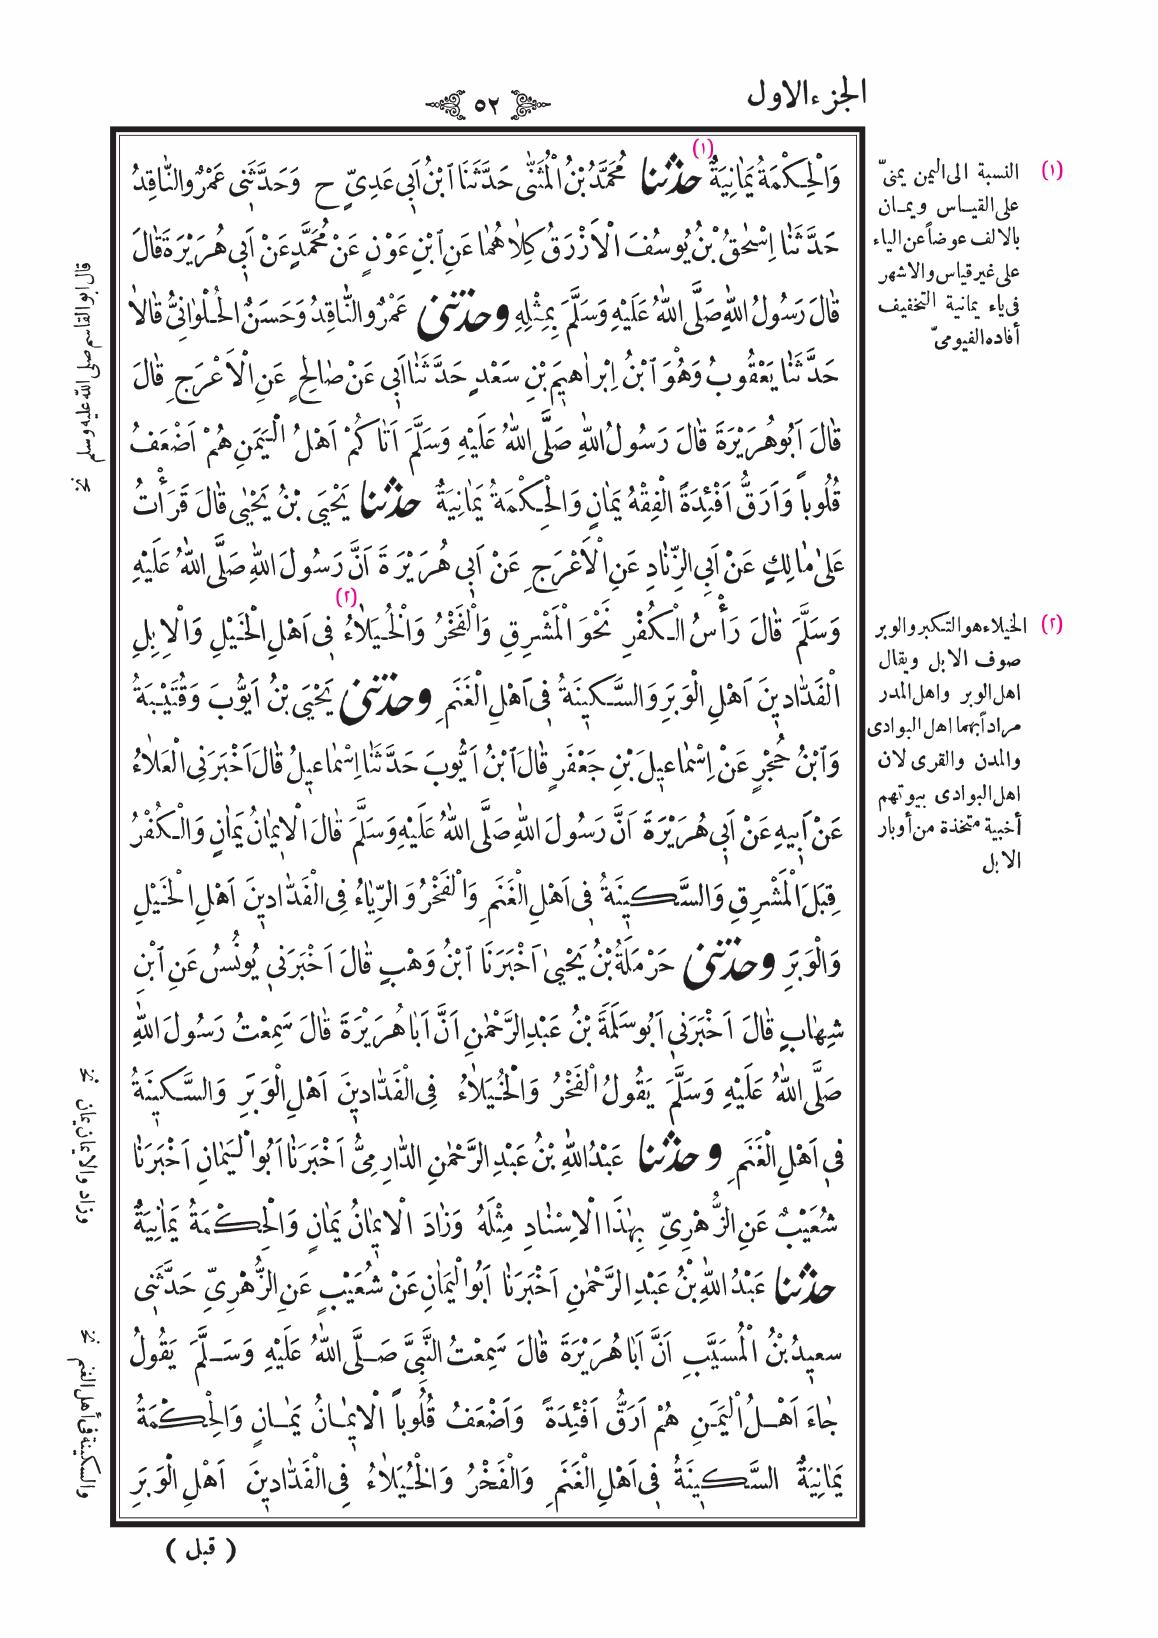 الجزء الاول
٥٢
وَالْحِكْمَةُ يَمَانِيَةٌ (١) حدثنا مُحَمَّدُ بْنُ الْمُثَنّٰى حَدَّثَنَا ابْنُ اَبِي عَدِيٍّ ح وَحَدَّثَنِي عَمْرٌو النَّاقِدُ
حَدَّثَنَا اِسْحٰقُ بْنُ يُوسُفَ الْاَزْرَقُ كِلاٰهُمَا عَنِ ابْنِ عَوْنٍ عَنْ مُحَمَّدٍ عَنْ اَبِي هُرَيْرَةَ قَالَ
قَالَ رَسُولُ اللهِ صَلَّى اللهُ عَلَيْهِ وَسَلَّمَ بِمِثْلِهِ وحدثنى عَمْرٌو النَّاقِدُ وَحَسَنٌ الْحُلْوَانِيُّ قَالاٰ
حَدَّثَنَا يَعْقُوبُ وَهُوَ ابْنُ اِبْرَاهِيمَ بْنِ سَعْدٍ حَدَّثَنَا اَبِي عَنْ صَالِحٍ عَنِ الْاَعْرَجِ قَالَ
قَالَ اَبُو هُرَيْرَةَ قَالَ رَسُولُ اللهِ صَلَّى اللهُ عَلَيْهِ وَسَلَّمَ اَتَاكُمْ اَهْلُ الْيَمَنِ هُمْ اَضْعَفُ
قُلُوباً وَاَرَقُّ اَفْئِدَةً الْفِقْهُ يَمَانٍ وَالْحِكْمَةُ يَمَانِيَةٌ حدثنا يَحْيَى بْنُ يَحْيٰى قَالَ قَرَأْتُ
عَلىٰ مَالِكٍ عَنْ اَبِي الزِّنَادِ عَنِ الْاَعْرَجِ عَنْ اَبِي هُرَيْرَةَ اَنَّ رَسُولَ اللهِ صَلَّى اللهُ عَلَيْهِ
وَسَلَّمَ قَالَ رَأْسُ الْكُفْرِ نَحْوَ الْمَشْرِقِ وَالْفَخْرُ وَالْخُيَلاٰءُ (٢) فِي اَهْلِ الْخَيْلِ وَالْاِبِلِ
الْفَدَّادِينَ اَهْلِ الْوَبَرِ وَالسَّكِينَةُ فِي اَهْلِ الْغَنَمِ وحدثنى يَحْيَى بْنُ اَيُّوبَ وَقُتَيْبَةُ
وَابْنُ حُجْرٍ عَنْ اِسْمَاعِيلَ بْنِ جَعْفَرٍ قَالَ ابْنُ اَيُّوبَ حَدَّثَنَا اِسْمَاعِيلُ قَالَ اَخْبَرَنِي الْعَلاٰءُ
عَنْ اَبِيهِ عَنْ اَبِي هُرَيْرَةَ اَنَّ رَسُولَ اللهِ صَلَّى اللهُ عَلَيْهِ وَسَلَّمَ قَالَ الْاِيمَانُ يَمَانٍ وَالْكُفْرُ
قِبَلَ الْمَشْرِقِ وَالسَّكِينَةُ فِي اَهْلِ الْغَنَمِ وَالْفَخْرُ وَالرِّيَاءُ فِي الْفَدَّادِينَ اَهْلِ الْخَيْلِ
وَالْوَبَرِ وحدثنى حَرْمَلَةُ بْنُ يَحْيىٰ اَخْبَرَنَا ابْنُ وَهْبٍ قَالَ اَخْبَرَنِي يُونُسُ عَنِ ابْنِ
شِهَابٍ قَالَ اَخْبَرَنِي اَبُو سَلَمَةَ بْنُ عَبْدِ الرَّحْمٰنِ اَنَّ اَبَا هُرَيْرَةَ قَالَ سَمِعْتُ رَسُولَ اللهِ
صَلَّى اللهُ عَلَيْهِ وَسَلَّمَ يَقُولُ الْفَخْرُ وَالْخُيَلاٰءُ فِي الْفَدَّادِينَ اَهْلِ الْوَبَرِ وَالسَّكِينَةُ
فِي اَهْلِ الْغَنَمِ وحدثنا عَبْدُ اللهِ بْنُ عَبْدِ الرَّحْمٰنِ الدَّارِمِيُّ اَخْبَرَنَا اَبُو الْيَمَانِ اَخْبَرَنَا
شُعَيْبٌ عَنِ الزُّهْرِيِّ بِهٰذَا الْاِسْنَادِ مِثْلَهُ وَزَادَ الْاِيمَانُ يَمَانٍ وَالْحِكْمَةُ يَمَانِيَةٌ
حدثنا عَبْدُ اللهِ بْنُ عَبْدِ الرَّحْمٰنِ اَخْبَرَنَا اَبُو الْيَمَانِ عَنْ شُعَيْبٍ عَنِ الزُّهْرِيِّ حَدَّثَنِي
سَعِيدُ بْنُ الْمُسَيَّبِ اَنَّ اَبَا هُرَيْرَةَ قَالَ سَمِعْتُ النَّبِيَّ صَلَّى اللهُ عَلَيْهِ وَسَلَّمَ يَقُولُ
جَاءَ اَهْلُ الْيَمَنِ هُمْ اَرَقُّ اَفْئِدَةً وَاَضْعَفُ قُلُوباً الْاِيمَانُ يَمَانٍ وَالْحِكْمَةُ
يَمَانِيَةٌ السَّكِينَةُ فِي اَهْلِ الْغَنَمِ وَالْفَخْرُ وَالْخُيَلاٰءُ فِي الْفَدَّادِينَ اَهْلِ الْوَبَرِ
( قبل )
(١) النسبة الى اليمن يمنىّ
على القياس ويمان
بالالف عوضاً عن الياء
على غير قياس والاشهر
فى ياء يمانية التخفيف
أفاده الفيومىّ
(٢) الخيلاء هو التكبر والوبر
صوف الابل ويقال
اهل الوبر واهل المدر
مراداً بهما اهل البوادى
والمدن والقرى لان
اهل البوادى بيوتهم
أخبية متخذة من أوبار
الابل
قال ابو القاسم صلى الله عليه وسلم نخ
وزاد والايمان يمان نخ
والسكينة فى أهل الغنم نخ